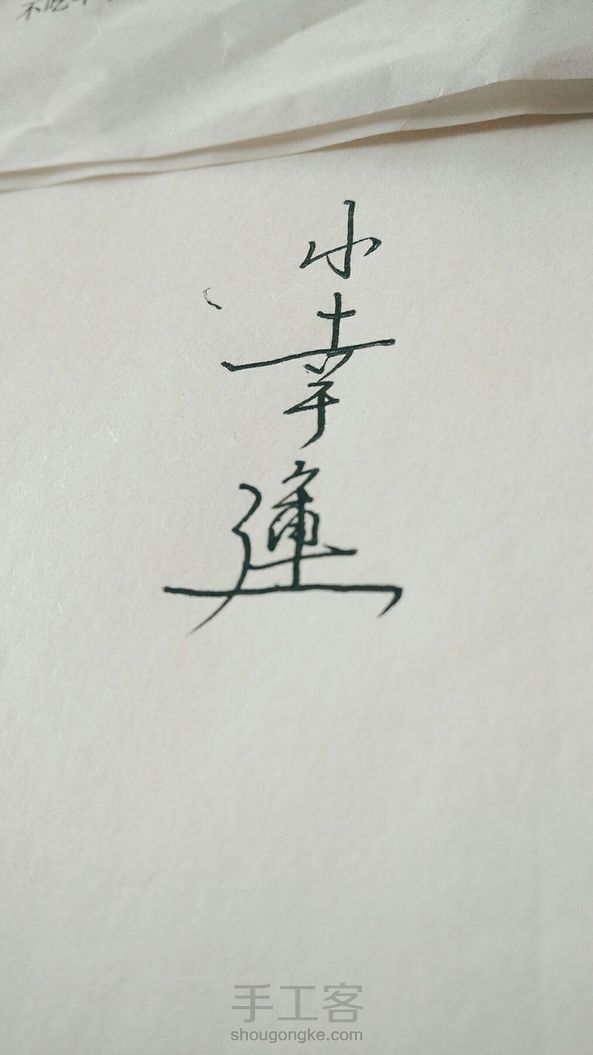 小
幸
運
手工客
shougongke.com